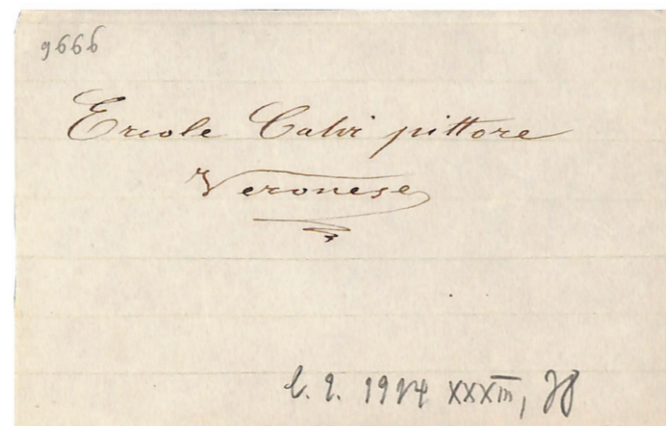 9666
Ercole Calvi pittore
Veronese
XXXIII,